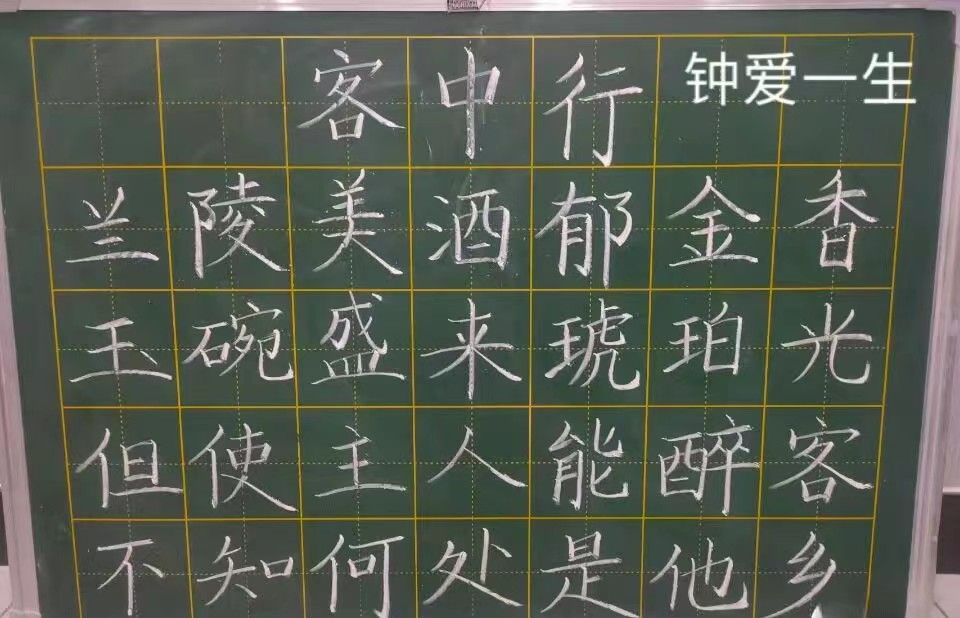 客中行
钟爱一生
兰陵美酒郁金香
玉碗盛来琥珀光
但使主人能醉客
不知何处是他乡